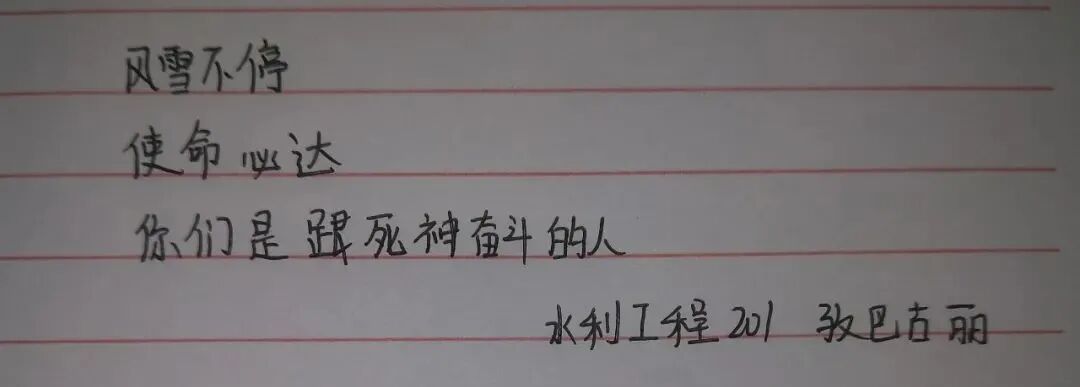 风雪不停
使命必达
你们是跟死神奋斗的人
水利工程201 孜巴古丽